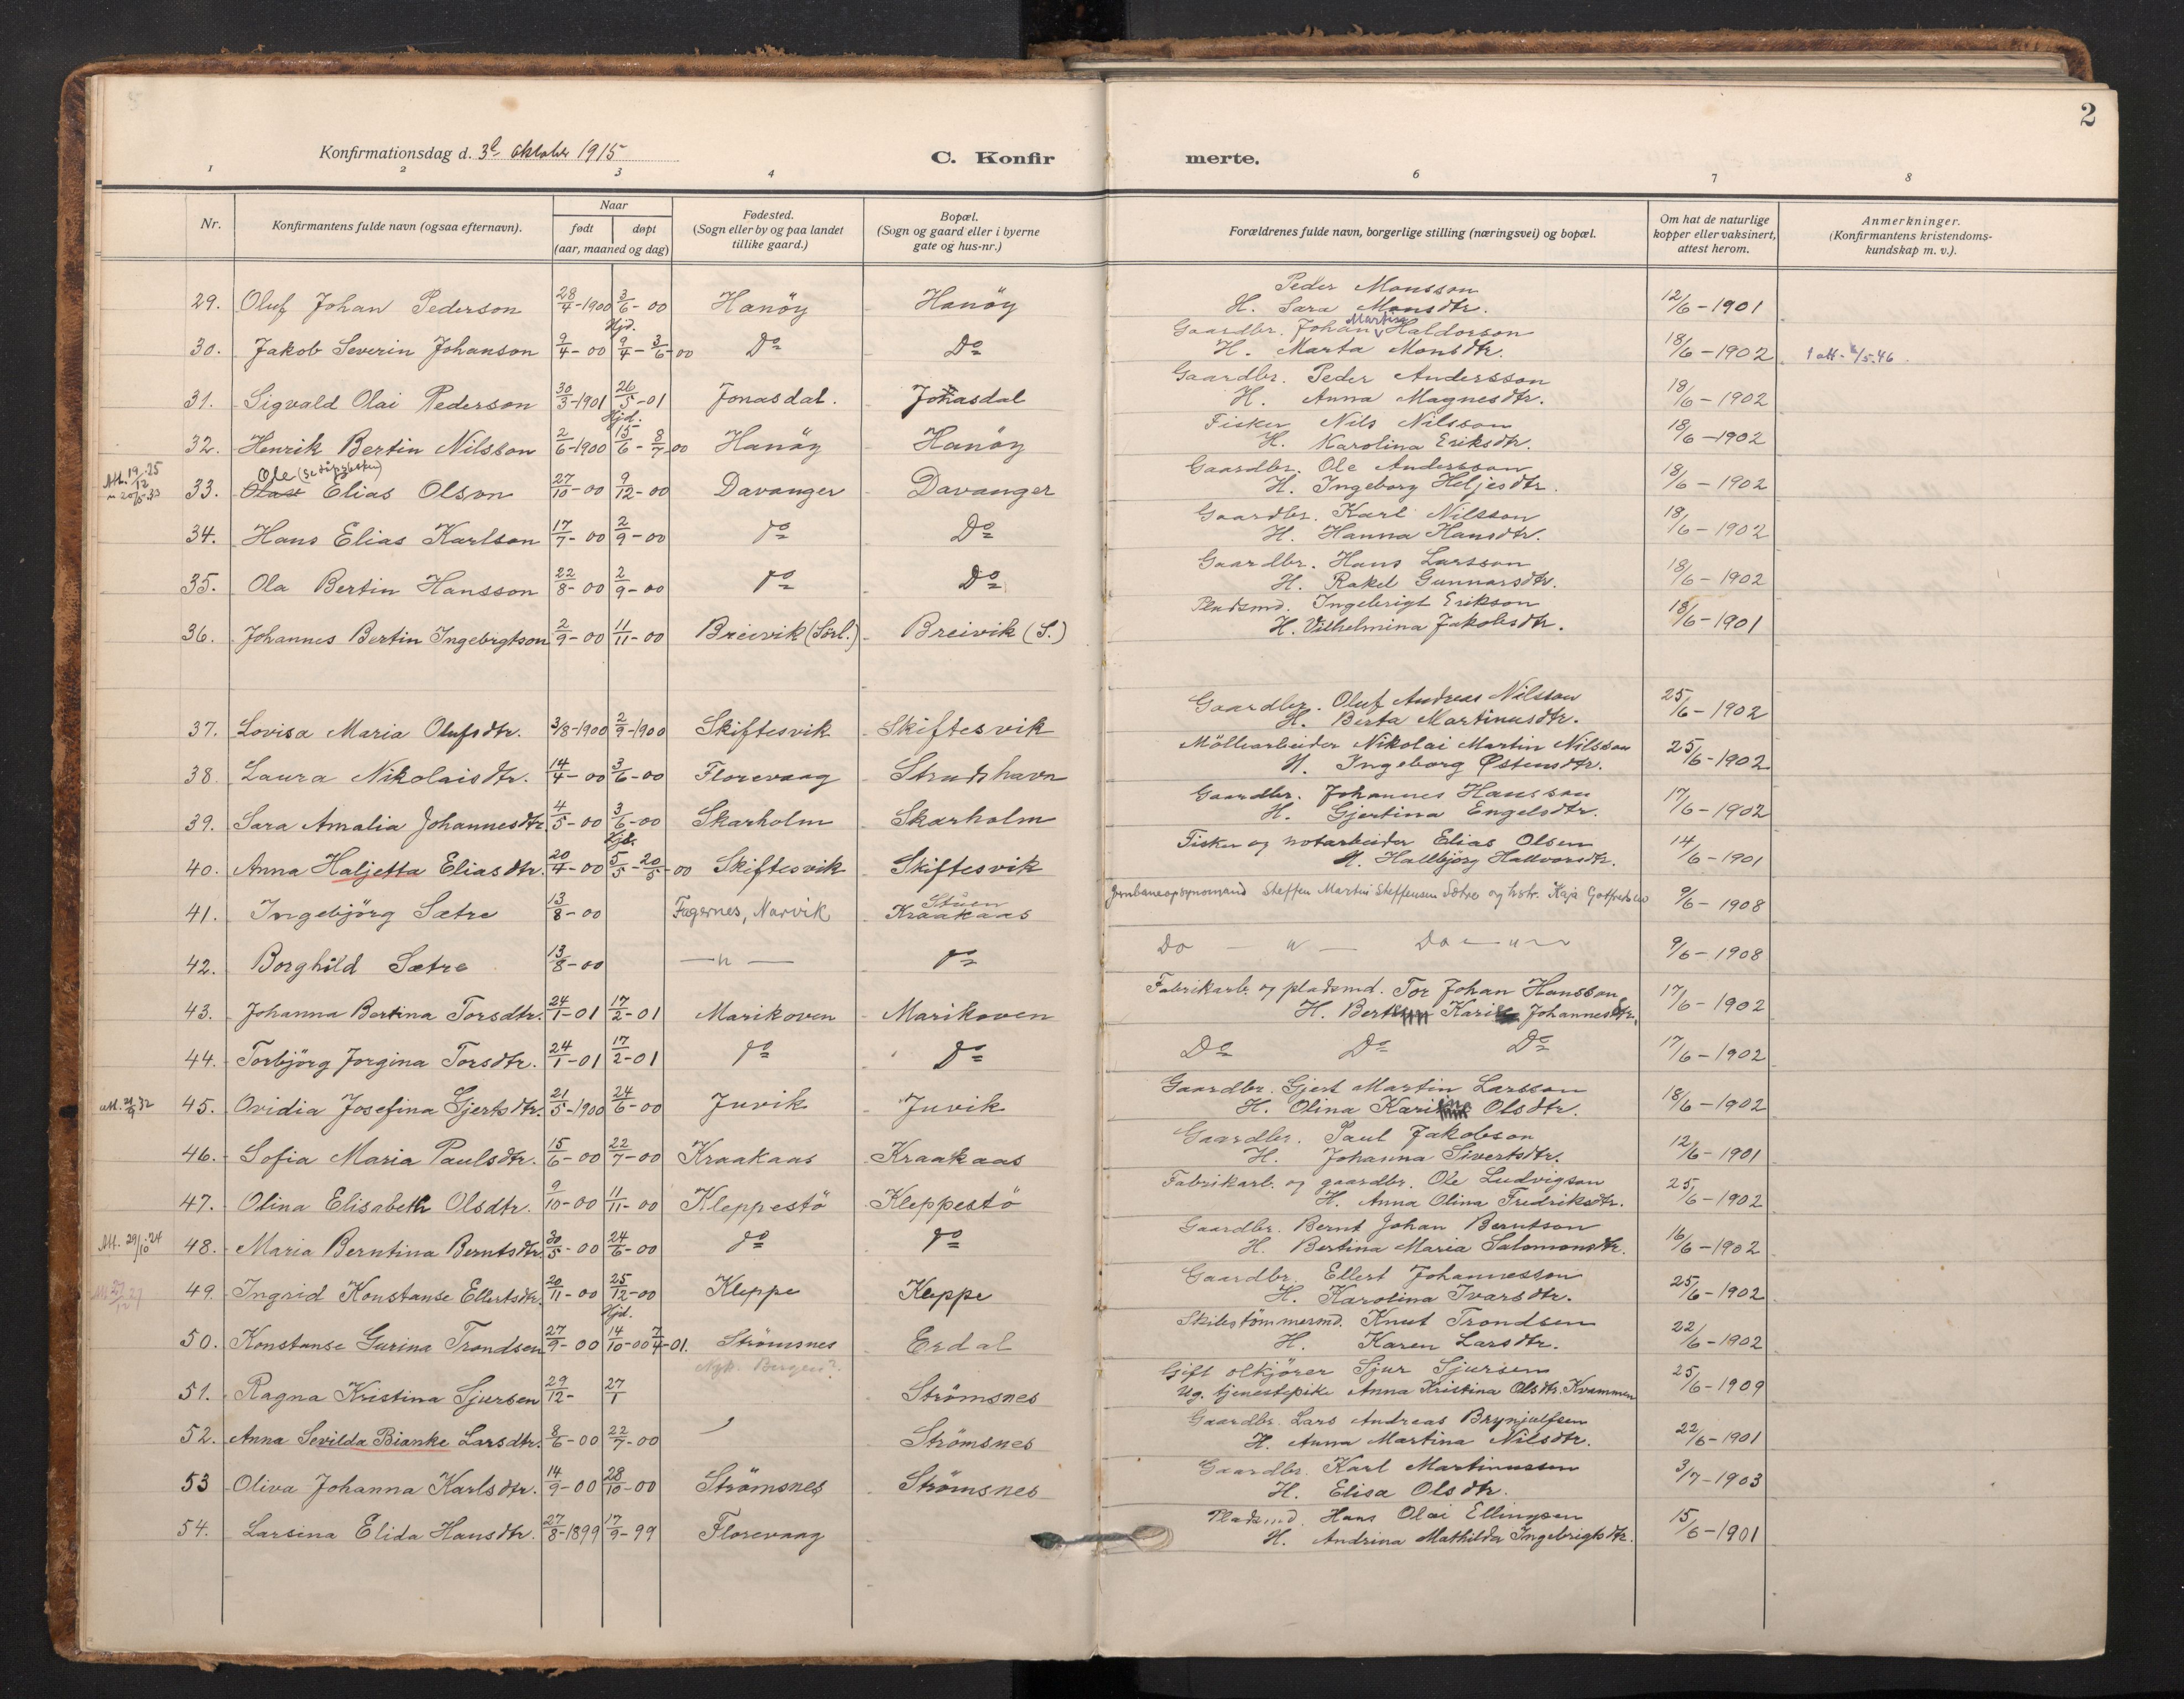 2
Konfirmationsdag d. 3de oktober 1915
C. Konfirmerte.
1 2 3 4 6 7 8
Nr.
Konfirmantens fulde navn (ogsaa efternavn).
Naar
født døpt
(aar, maaned og dag)
Fødested.
(Sogn eller by og paa landet
tillike gaard.)
Bopæl.
(Sogn og gaard eller i byerne
gate og hus-nr.)
Forældrenes fulde navn, borgerlige stilling (næringsvei) og bopæl.
Om hat de naturlige
kopper eller vaksinert,
attest herom.
Anmerkninger.
(Konfirmantens kristendoms-
kundskap m. v.).
29. Oluf Johan Pederson 28/4-1900 3/6-00 Hanöy Hanöy Peder Monsson
H. Sara Monsdtr. 12/6-1901
30. Jakob Severin Johanson 9/4-00 Hjd. 9/4-3/6-00 Do Do Gaardbr. Johan Martin Haldorson
H. Marta Monsdtr. 18/6-1902 1 att. 4/5.46
31. Sigvald Olai Pederson 30/3-1901 26/5-01 Jonasdal. Jonasdal Gaardbr. Peder Andersson
H. Anna Magnesdtr. 18/6-1902
32. Henrik Bertin Nilsson 2/6-1900 Hjd. 15/6-8/7-00 Hanöy Hanöy Fisker Nils Nilsson
H. Karolina Eriksdtr. 18/6-1902
Att. 19/12.25
33. Ole Elias Olson 27/10-00 9/12-00 Davanger Davanger Gaardbr. Ole Andersson
H. Ingeborg Heljesdtr. 18/6-1902
34. Hans Elias Karlson 17/7-00 2/9-00 do Do Gaardbr. Karl Nilsson
H. Hanna Hansdtr. 18/6-1902
35. Ola Bertin Hansson 22/8-00 2/9-00 do Do Gaardbr. Hans Larsson
H. Rakel Gunnarsdtr. 18/6-1902
36. Johannes Bertin Ingebrgtson 2/9-00 11/11-00 Breivik (Sörl.) Breivik (S.) Pladsmd. Ingebrigt Erikson
H. Vilhelmina Jakobsdtr. 18/6-1901
37. Lovisa Maria Olufsdtr. 3/8-1900 2/9-1900 Skiftesvik Skiftesvik Gaardbr. Oluf Andreas Nilsson
H. Berta Martinusdtr. 25/6-1902
38. Laura Nikolaisdtr. 14/4-00 3/6-00 Florevaag Strudshavn Möllearbeider Nikolai Martin Nilsson
H. Ingeborg Østensdtr. 25/6-1902
39. Sara Amalia Johannesdtr. 4/5-00 3/6-00 Skarholm Skarholm Gaardbr. Johannes Hansson
H. Gjertina Engelsdtr. 17/6-1902
40. Anna Haljetta Eliasdtr. 20/4-00 Hjd. 5/5-20/5-00 Skiftesvik Skiftesvik Fisker og notarbeider Elias Olsen
H. Hallbjörg Hallvorsdtr. 14/6-1901
41. Ingebjörg Sætre 13/8-00 Fagernes, Narvik Stuen Kraakaas Jernbaneopsynsmand Steffen Martin Steffensen Sætre og hstr. Kaja Gotfredsen 9/6-1908
42. Borghild Sætre 13/8-00 —"— do Do —"— Do —"— 9/6-1908
43. Johanna Bertina Torsdtr. 24/1-01 17/2-01 Marikoven Marikoven Fabrikarb. og pladsmd. Tor Johan Hansson
H. Kari Johannesdtr. 17/6-1902
44. Torbjörg Jorgina Torsdtr. 24/1-01 17/2-01 do do Do Do Do 17/6-1902
45. Ovidia Josefina Gjertsdtr. 21/5-1900 24/6-00 Juvik Juvik Gaardbr. Gjert Martin Larsson
H. Olina Karina Olsdtr. 18/6-1902
46. Sofia Maria Paulsdtr. 15/6-00 22/7-00 Kraakaas Kraakaas Gaardbr. Paul Jakobson
H. Johanna Sivertsdtr. 12/6-1901
47. Olina Elisabeth Olsdtr. 9/10-00 11/11-00 Kleppestö Kleppestö Fabrikarb. og gaardbr. Ole Ludvigson
H. Anna Olina Fredriksdtr. 25/6-1902
Att. 29/10.24
48. Maria Berntina Berntsdtr. 30/5-00 24/6-00 do do Gaardbr. Bernt Johan Berntson
H. Bertina Maria Salomonsdtr. 16/6-1902
49. Ingrid Konstanse Ellertsdtr. 20/11-00 25/12-00 Kleppe Kleppe Gaardbr. Ellert Johannesson
H. Karolina Ivarsdtr. 25/6-1902
50. Konstanse Gurina Trondsen 27/9-00 Hjd. 14/10-00 7/4-01. Strömsnes Erdal Skibstömmermd. Knut Trondsen
H. Karen Larsdtr. 22/6-1902
51. Ragna Kristina Sjursen 29/12- 27/1 Nyk. Bergen? Strömsnes Gift olkjörer Sjur Sjursen
Ug. tjenestepike Anna Kristina Olsdtr. Kvammen 25/6-1909
52. Anna Sevilda Bianke Larsdtr. 8/6-00 22/7-00 Strömsnes Gaardbr. Lars Andreas Brynjulfsen
H. Anna Martina Nilsdtr. 22/6-1901
53 Oliva Johanna Karlsdtr. 14/9-00 28/10-00 Strömsnes Strömsnes Gaardbr. Karl Martinussen
H. Elisa Olsdtr. 3/7-1903
54. Larsina Elida Hansdtr. 27/8-1899 17/9-99 Florevaag Pladsmd. Hans Olai Ellingsen
H. Andrina Mathilda Ingebrigtsdtr. 15/6-1901